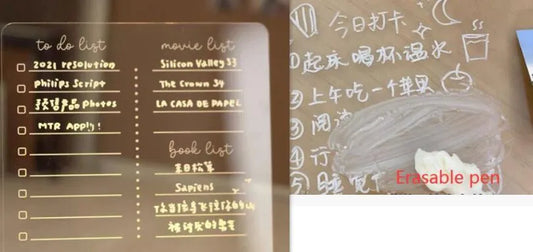 to do list
2021 resolution
Philips Script
预售产品 photos
MTR Apply!
movie list
Silicon Valley S3
The Crown S4
LA CASA DE PAPEL
book list
Sapiens
今日打卡
①起床喝杯温水
②上午吃一个苹果
③阅读
④行
⑤睡觉
Erasable pen